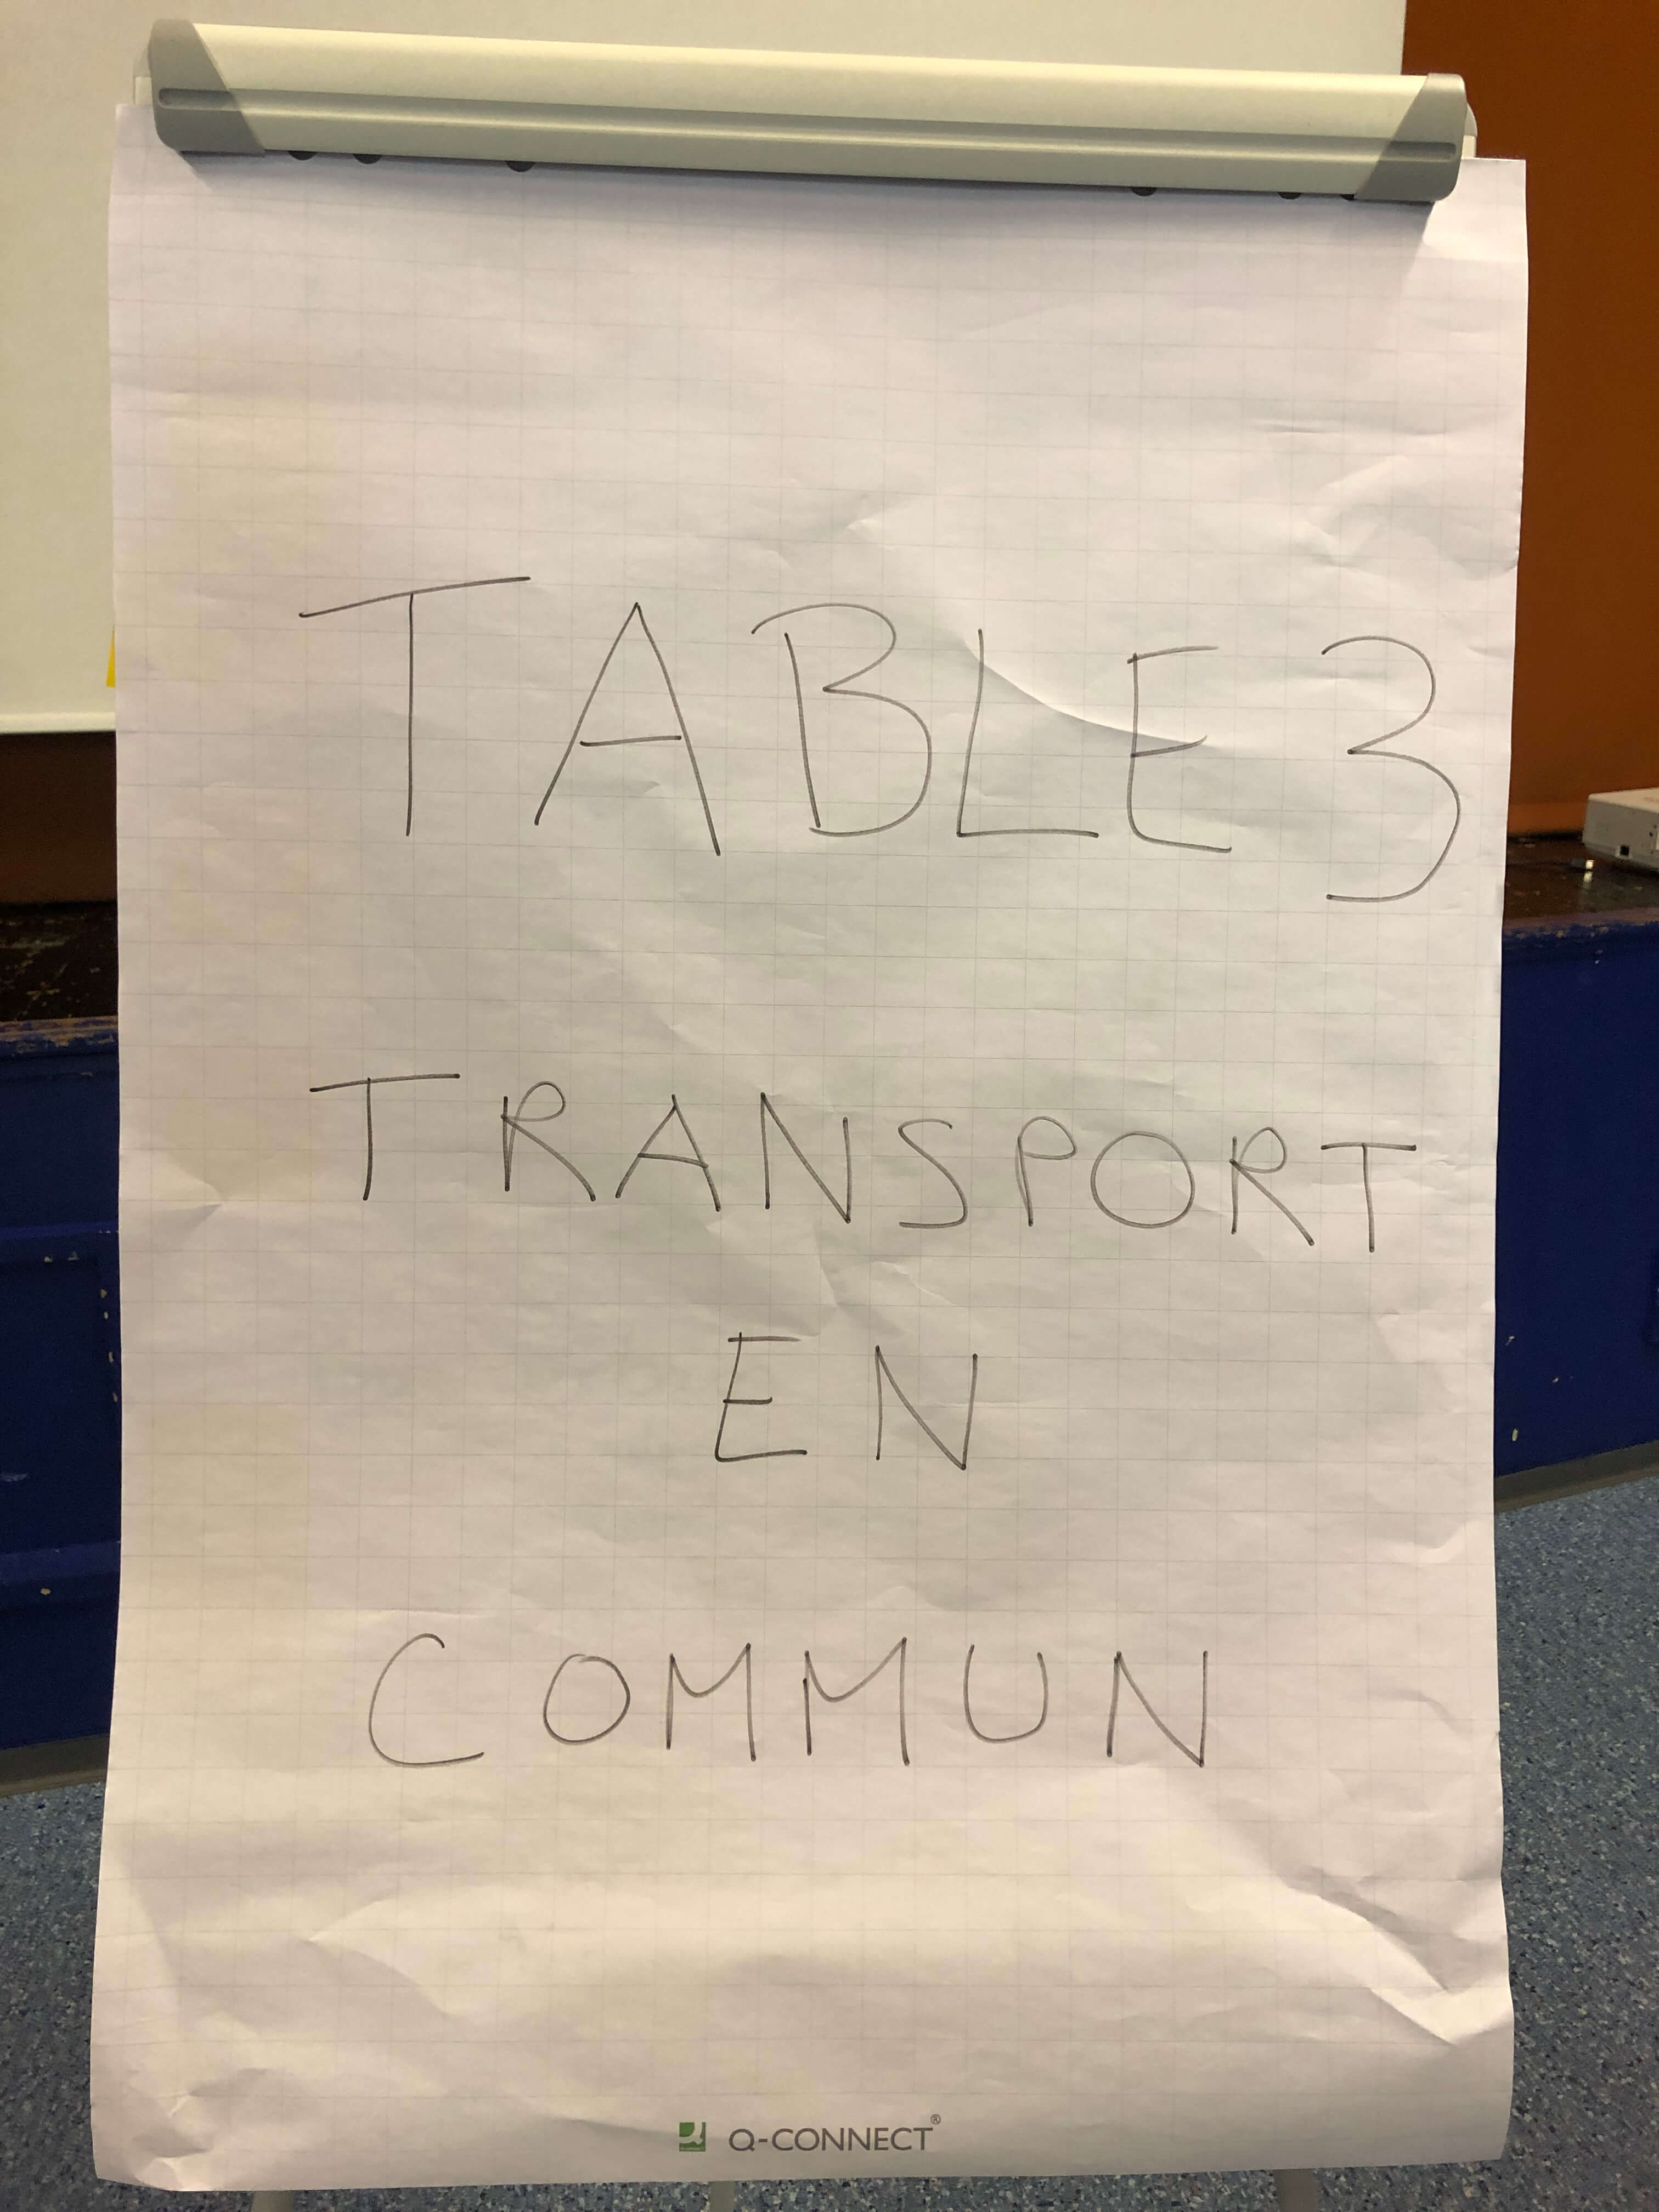 TABLE 3
TRANSPORT
EN
COMMUN
Q-CONNECT®